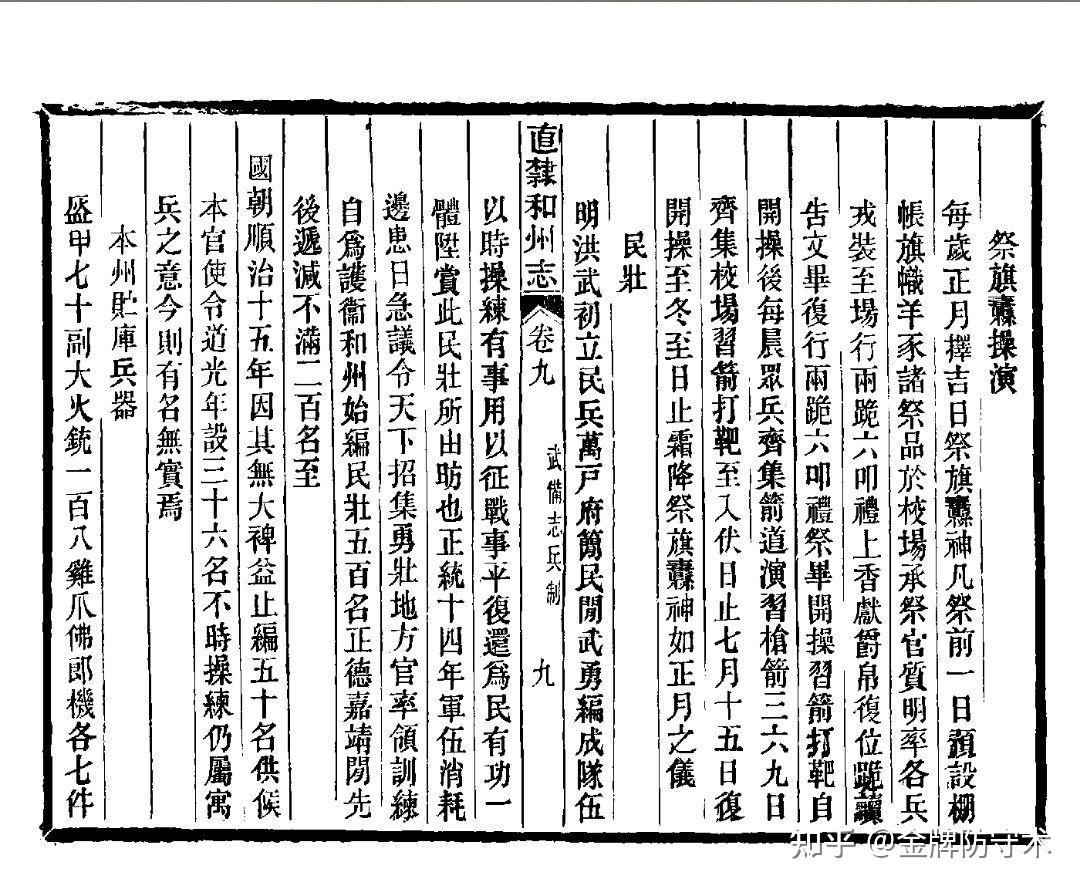 祭旗纛操演
每歲正月擇吉日祭旗纛神凡祭前一日預設棚
帳旗幟羊豕諸祭品於校場承祭官質明率各兵
戎裝至場行兩跪六叩禮上香獻爵帛復位跪讀
告文畢復行兩跪六叩禮祭畢開操習箭打靶自
開操後每晨眾兵齊集箭道演習槍箭三六九日
齊集校場習箭打靶至入伏日止七月十五日復
開操至冬至日止霜降祭旗纛神如正月之儀
民壯
明洪武初立民兵萬戸府簡民閒武勇編成隊伍
直隸和州志
卷九
武備志兵制
九
以時操練有事用以征戰事平復還為民有功一
體陞賞此民壯所由昉也正統十四年軍伍消耗
邊患日急議令天下招集勇壯地方官率領訓練
自為護衞和州始編民壯五百名正德嘉靖閒先
後遞減不滿二百名至
國朝順治十五年因其無大裨益止編五十名供候
本官使令道光年設三十六名不時操練仍屬寓
兵之意今則有名無實焉
本州貯庫兵器
盔甲七十副大火銃一百八雞爪佛郎機各七件
知乎 @金牌防守术